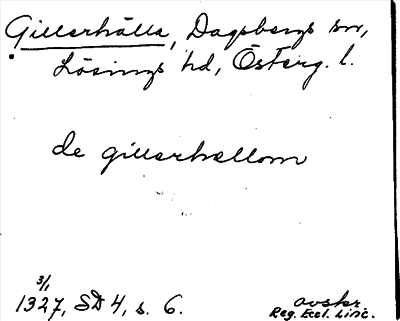 Gillerhälla, Dagsbergs sn,
Lösings hd, Österg. l.
de gillerhællom
3/1
1327, SD 4, s. 6.
avskr.
Reg. Eccl. Linc.